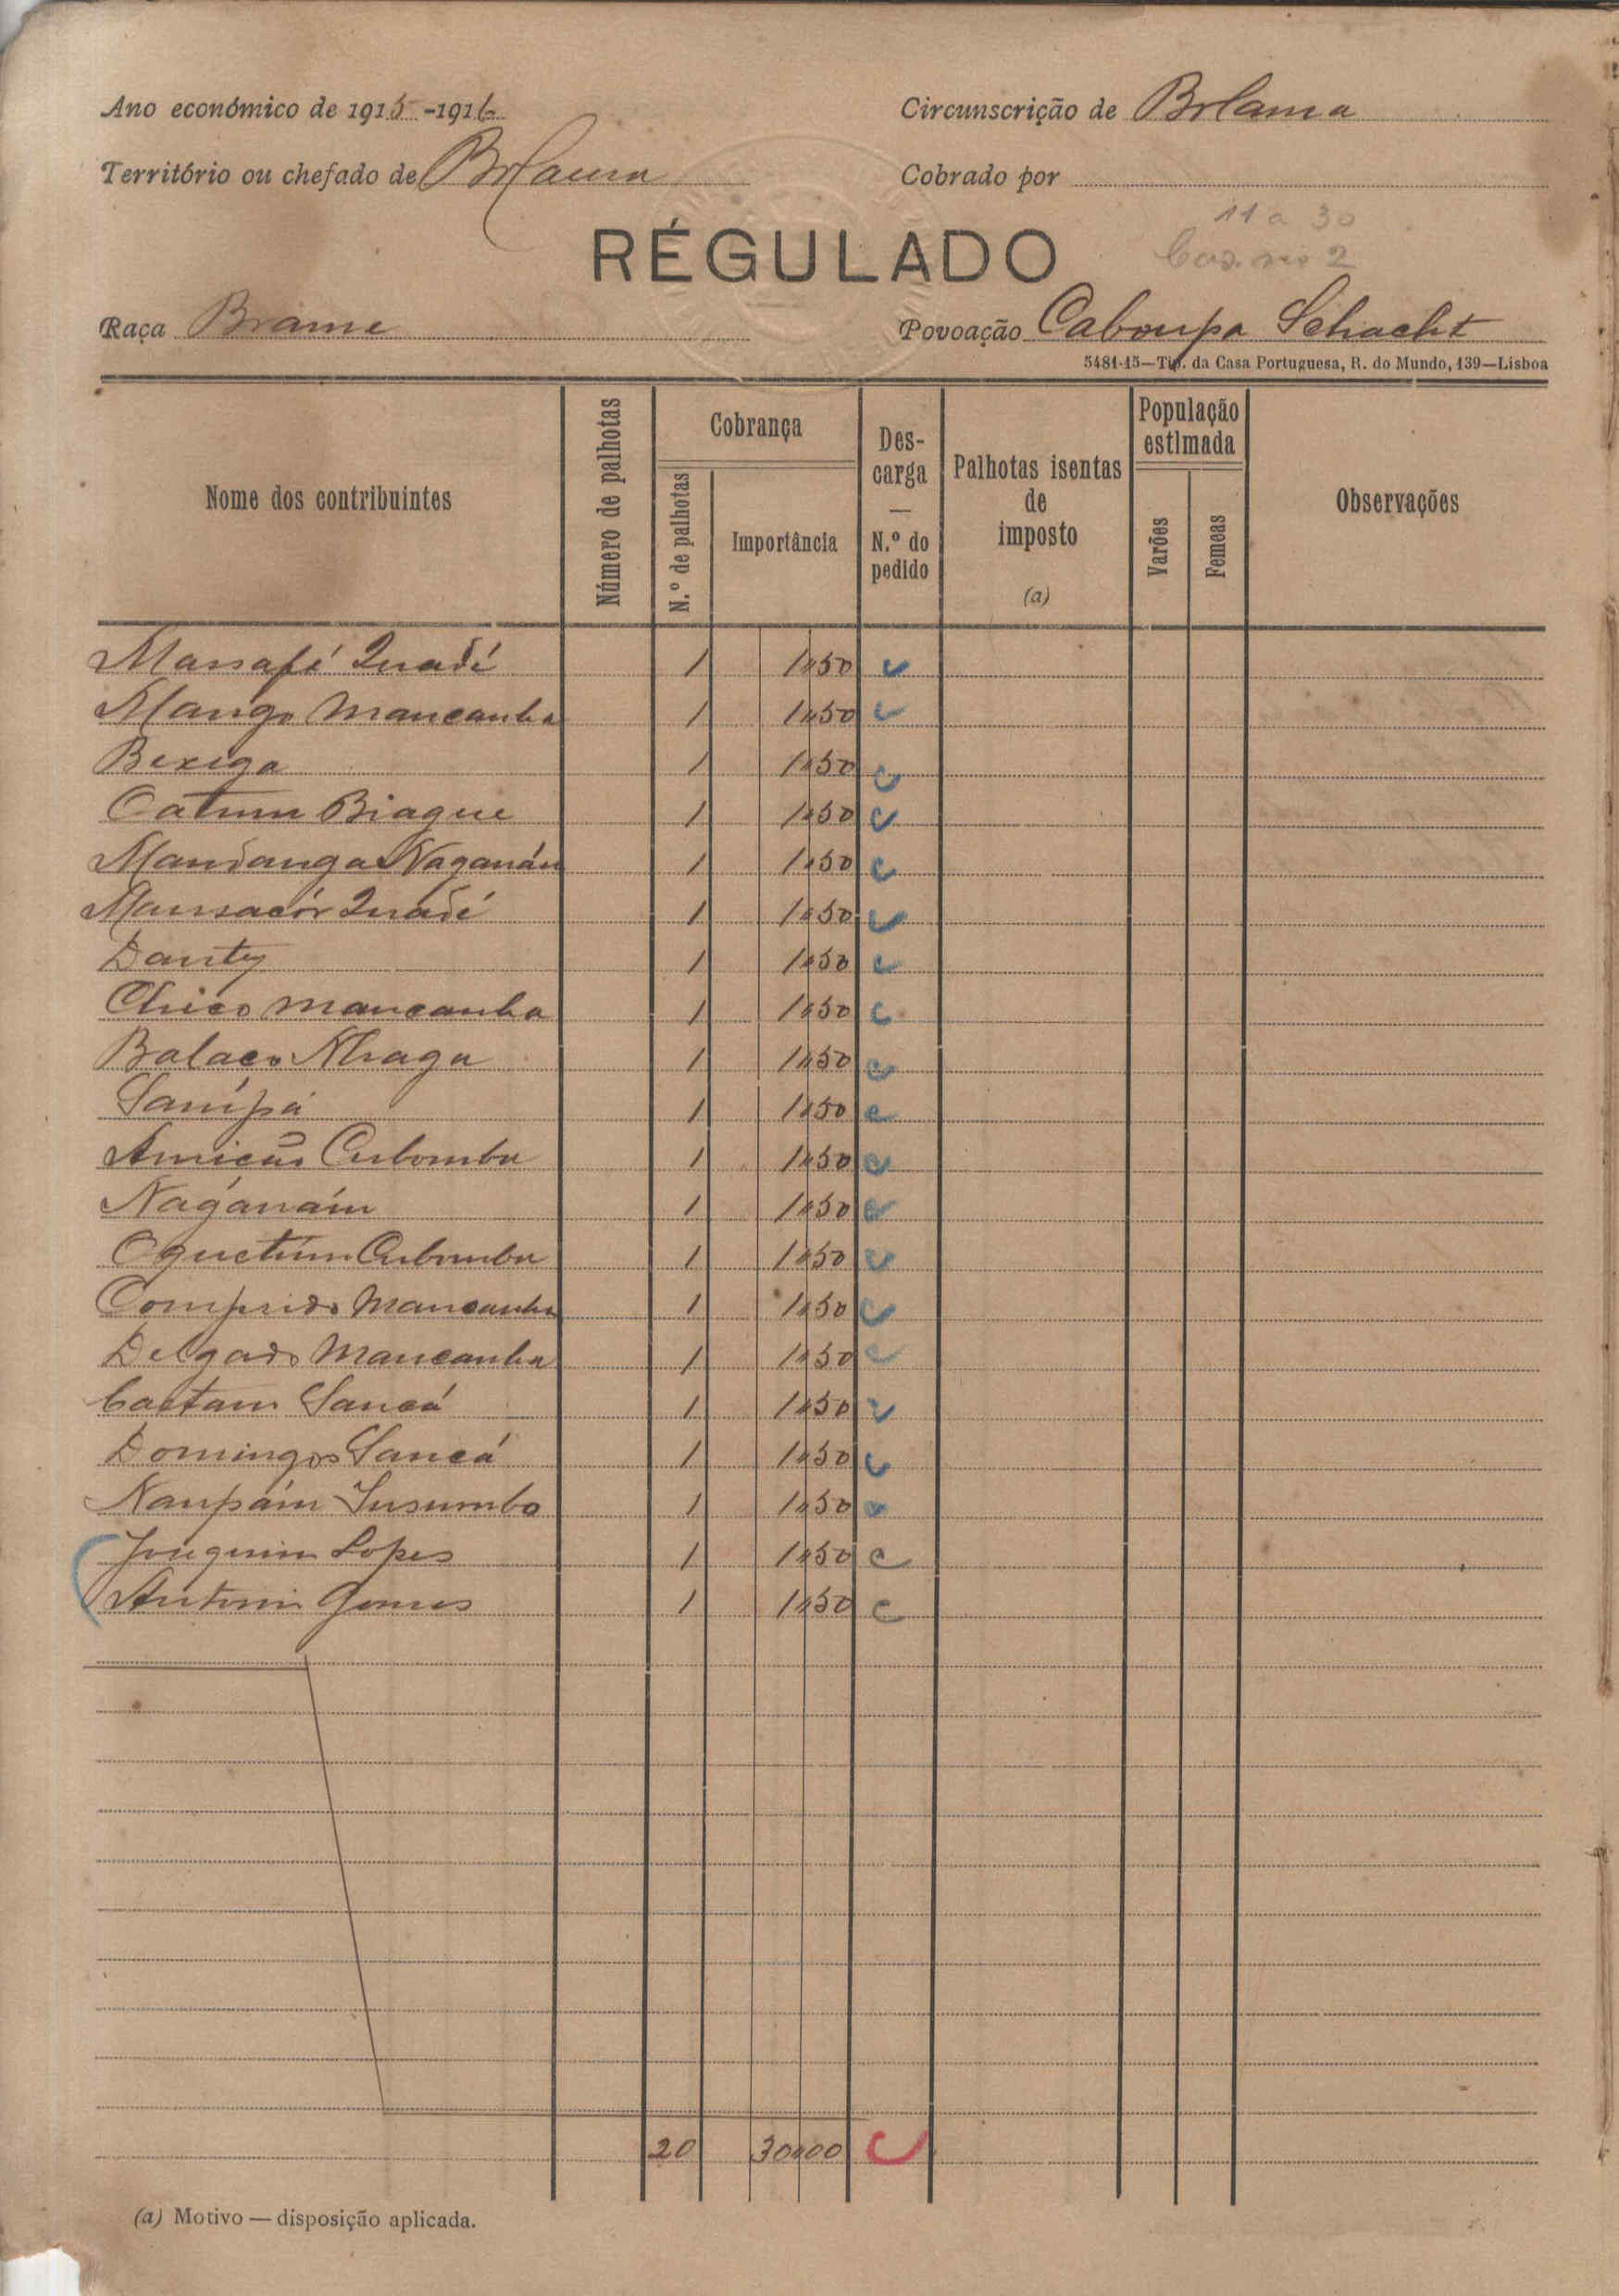 Ano económico de 1915-1916
Circunscrição de Bolama
Território ou chefado de Bolama
Cobrado por
11 a 30
2
RÉGULADO
Raça Brame
Povoação Caboupa Schacht
5481-15—Tip. da Casa Portuguesa, R. do Mundo, 139—Lisboa
Nome dos contribuintes
Número de palhotas
Cobrança
N.º de palhotas
Importância
Des-
carga
—
N.º do
pedido
Palhotas isentas
de
imposto
(a)
População
estimada
Varões
Femeas
Observações
Massafé Quadé 1 1$50
Mango Mancanha 1 1$50
Bexiga 1 1$50
Catum Biague 1 1$50
Mandanga Naganán 1 1$50
Mansacór Quadé 1 1$50
Danty 1 1$50
Chico Mancanha 1 1$50
Balaco Nhaga 1 1$50
Sanipá 1 1$50
Cubomba 1 1$50
Naganáin 1 1$50
Oquetum Cubomba 1 1$50
Comprido Mancanha 1 1$50
Delgado Mancanha 1 1$50
Caetano Sancá 1 1$50
Domingos Sancá 1 1$50
Naupáin Susumbo 1 1$50
Joaquim Lopes 1 1$50
Antonio Gomes 1 1$50
20 30$00
(a) Motivo — disposição aplicada.